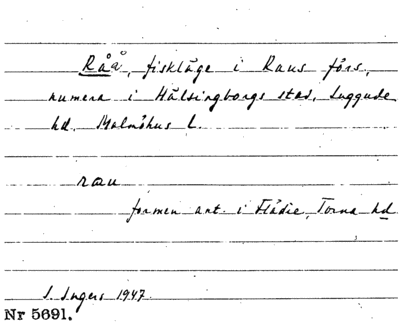 Råå, fiskläge i Raus förs.,
numera i Hälsingborgs stad, Luggude
hd. Malmöhus L.
rau
formen ant. i Flädie, Torna hd
I. Ingers 1947.
Nr 5691.